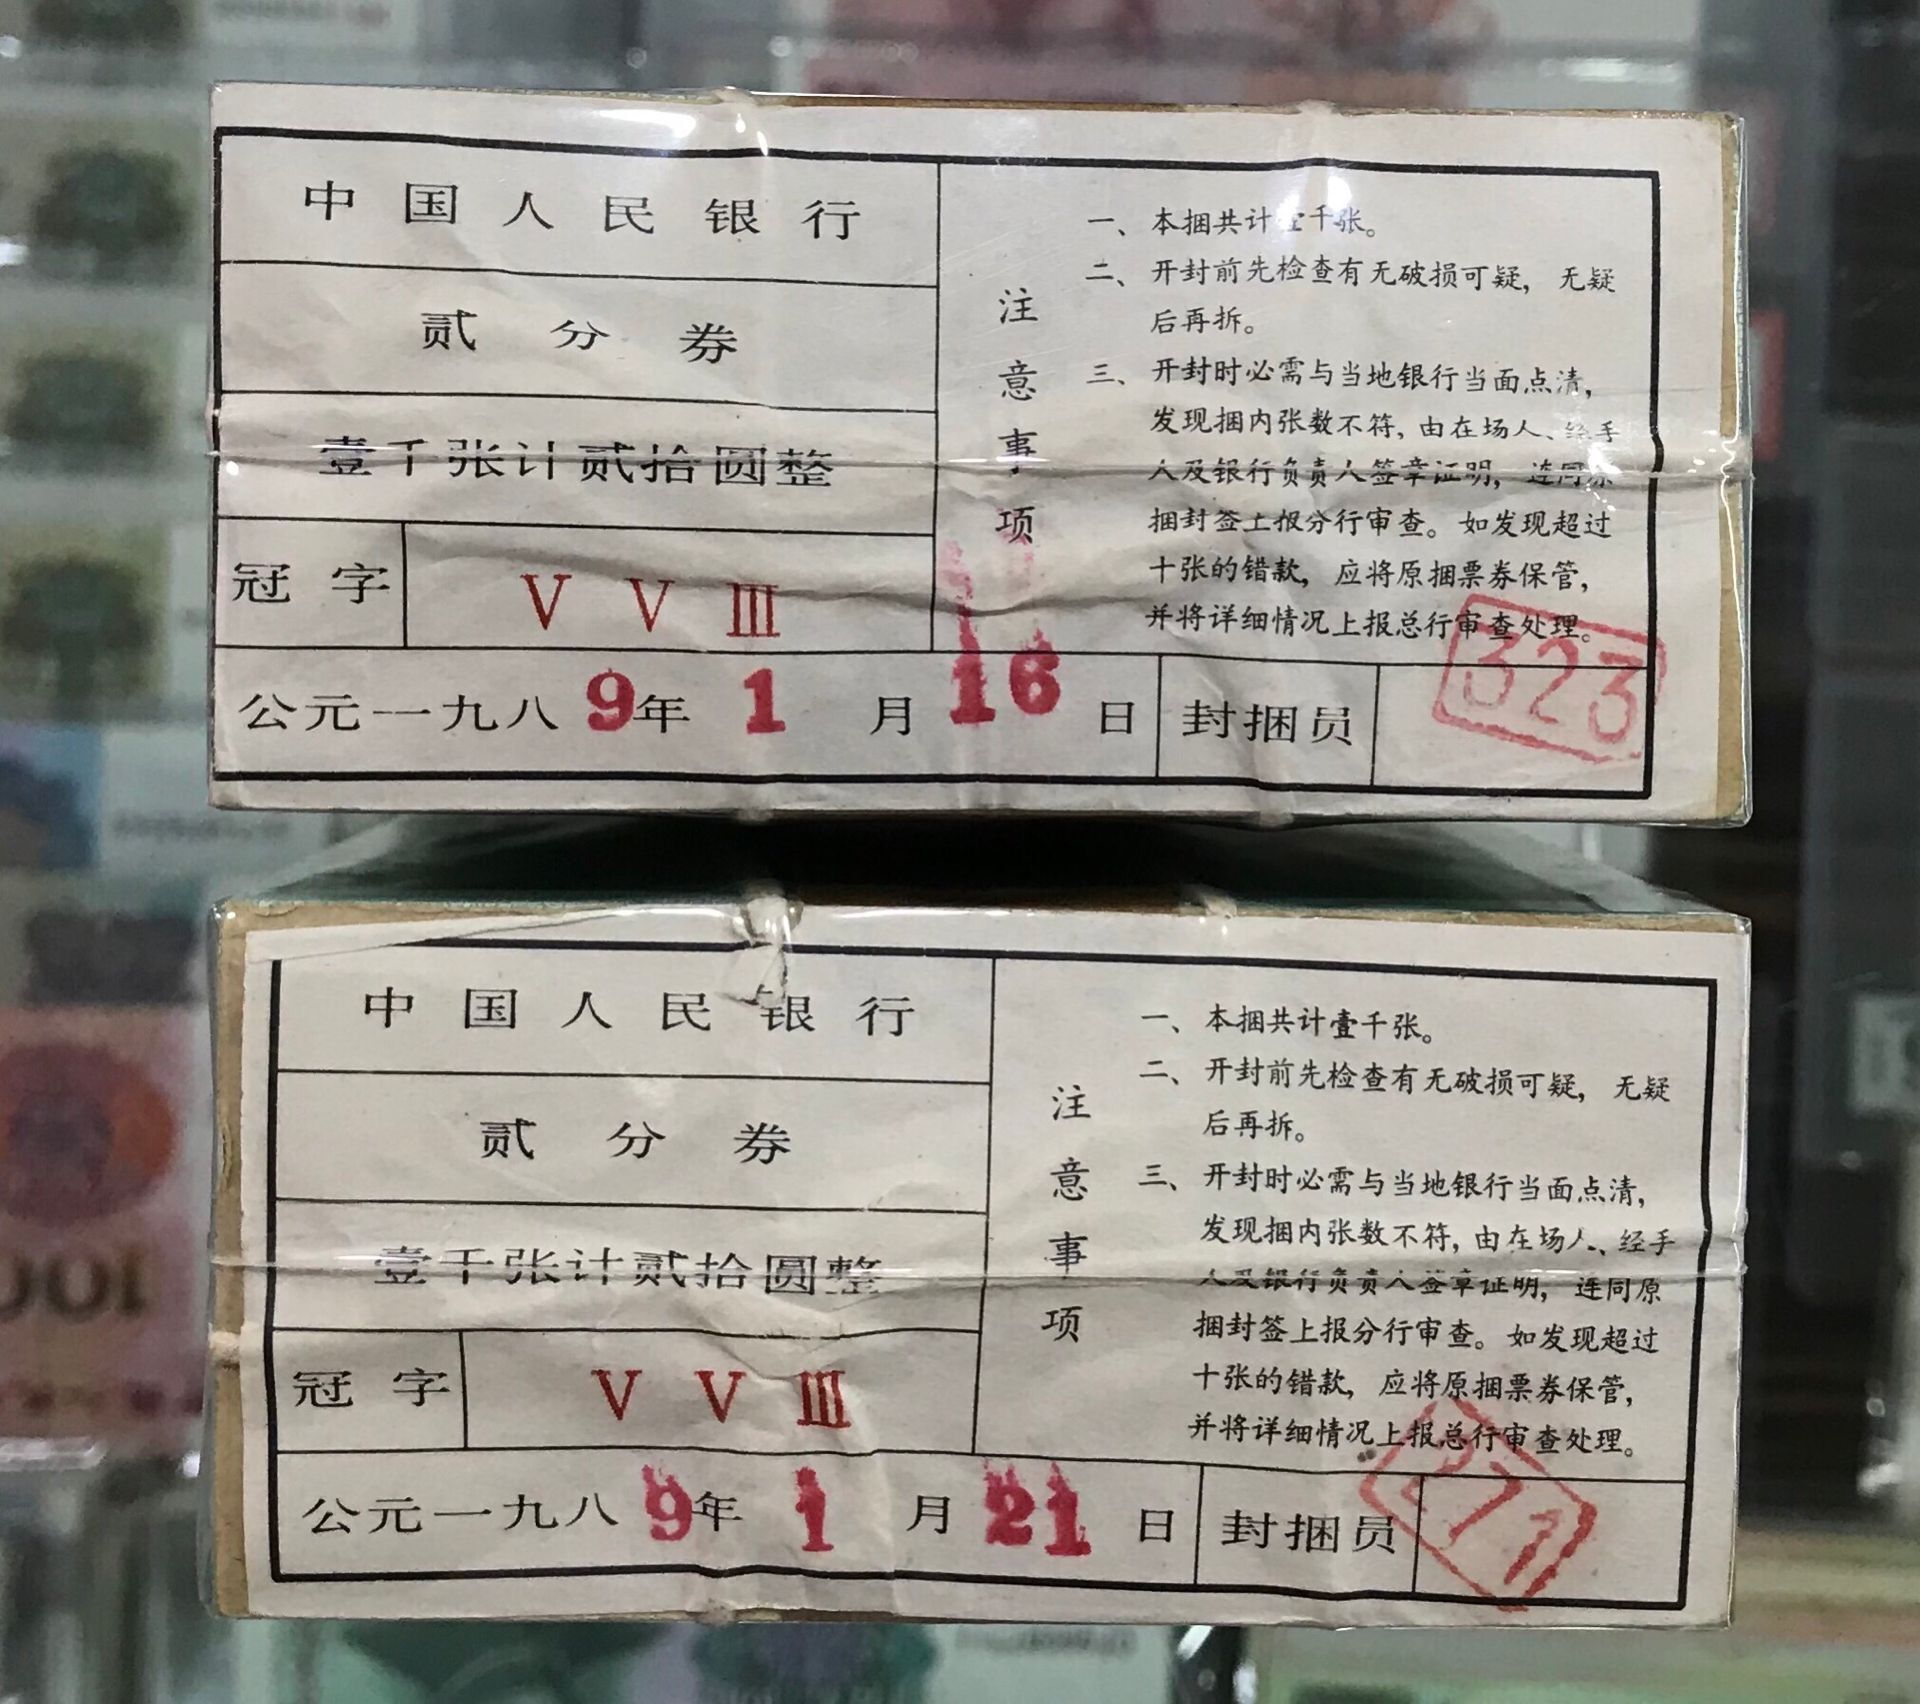 中国人民银行
贰分券
壹千张计贰拾圆整
冠字 V V III
公元一九八9年 1 月 16 日
封捆员 323
注意事项
一、本捆共计壹千张。
二、开封前先检查有无破损可疑，无疑
后再拆。
三、开封时必需与当地银行当面点清，
发现捆内张数不符，由在场人、经手
人及银行负责人签章证明，连同原
捆封签上报分行审查。如发现超过
十张的错款，应将原捆票券保管，
并将详细情况上报总行审查处理。
中国人民银行
贰分券
壹千张计贰拾圆整
冠字 V V III
公元一九八9年 1 月 21 日
封捆员 271
注意事项
一、本捆共计壹千张。
二、开封前先检查有无破损可疑，无疑
后再拆。
三、开封时必需与当地银行当面点清，
发现捆内张数不符，由在场人、经手
人及银行负责人签章证明，连同原
捆封签上报分行审查。如发现超过
十张的错款，应将原捆票券保管，
并将详细情况上报总行审查处理。
100